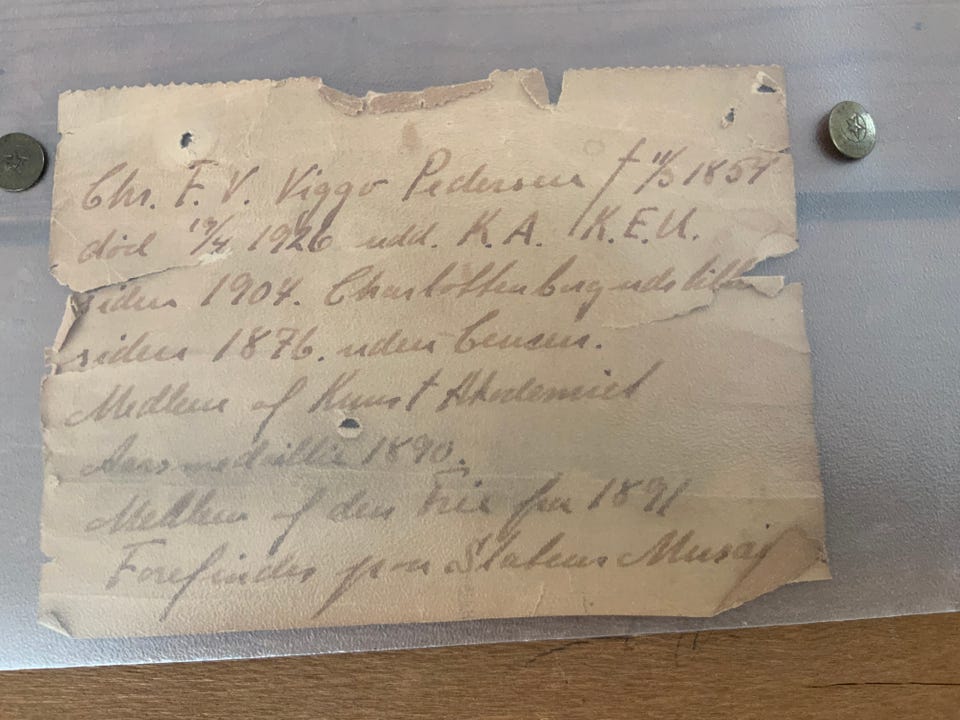 Chr. F. V. Viggo Pedersen f 11/3 1854
död 19/4 1926 udd. K.A. K.E.U.
siden 1904. Charlottenborg udstill
siden 1876. uden Censur.
Medlem af Kunst Akademiet
Aarsmedaille 1890.
Medlem af den Frie fra 1891
Forefindes paa Statens Musæ